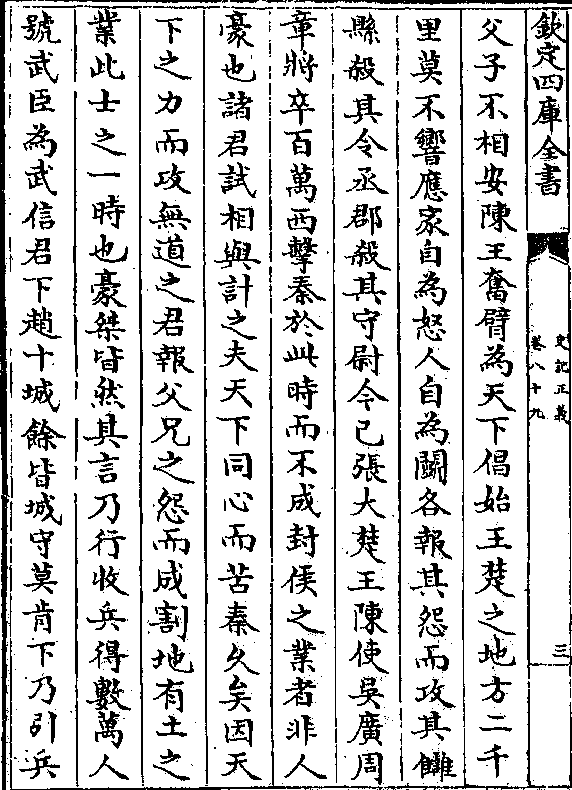 欽定四庫全書
史記正義
卷八十九
三
父子不相安陳王奮臂為天下倡始王楚之地方二千
里莫不響應家自為怒人自為鬬各報其怨而攻其讎
縣殺其令丞郡殺其守尉今已張大楚王陳使吳廣周
章將卒百萬西擊秦於此時而不成封侯之業者非人
豪也諸君試相與計之夫天下同心而苦秦久矣因天
下之力而攻無道之君報父兄之怨而成割地有土之
業此士之一時也豪桀皆然其言乃行收兵得數萬人
號武臣為武信君下趙十城餘皆城守莫肯下乃引兵